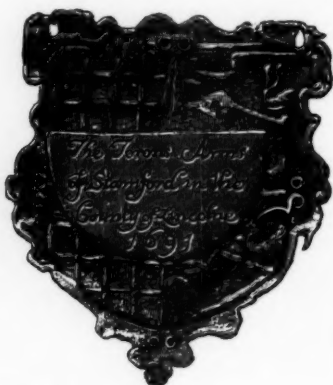 The Town Arms
of Stamford in the
County of Lincolne
1691